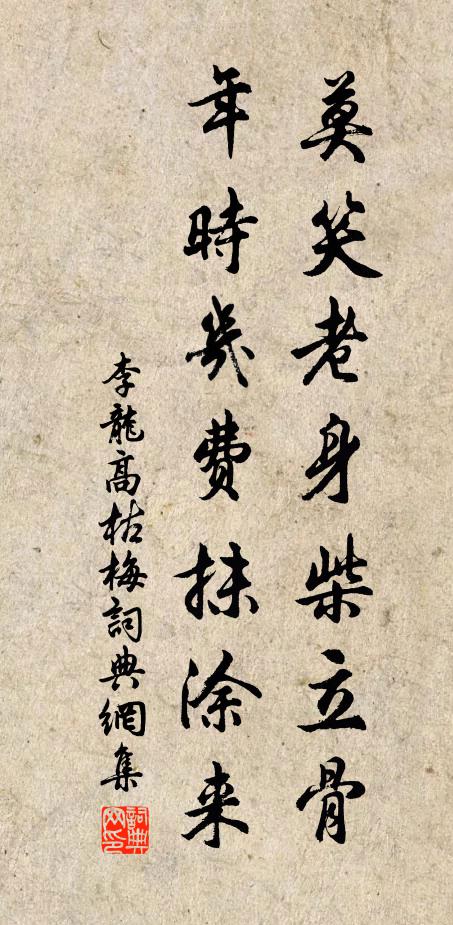 莫笑老身柴立骨
年時幾費抹涂来
李龍高枯梅詞典網集
詞典網印